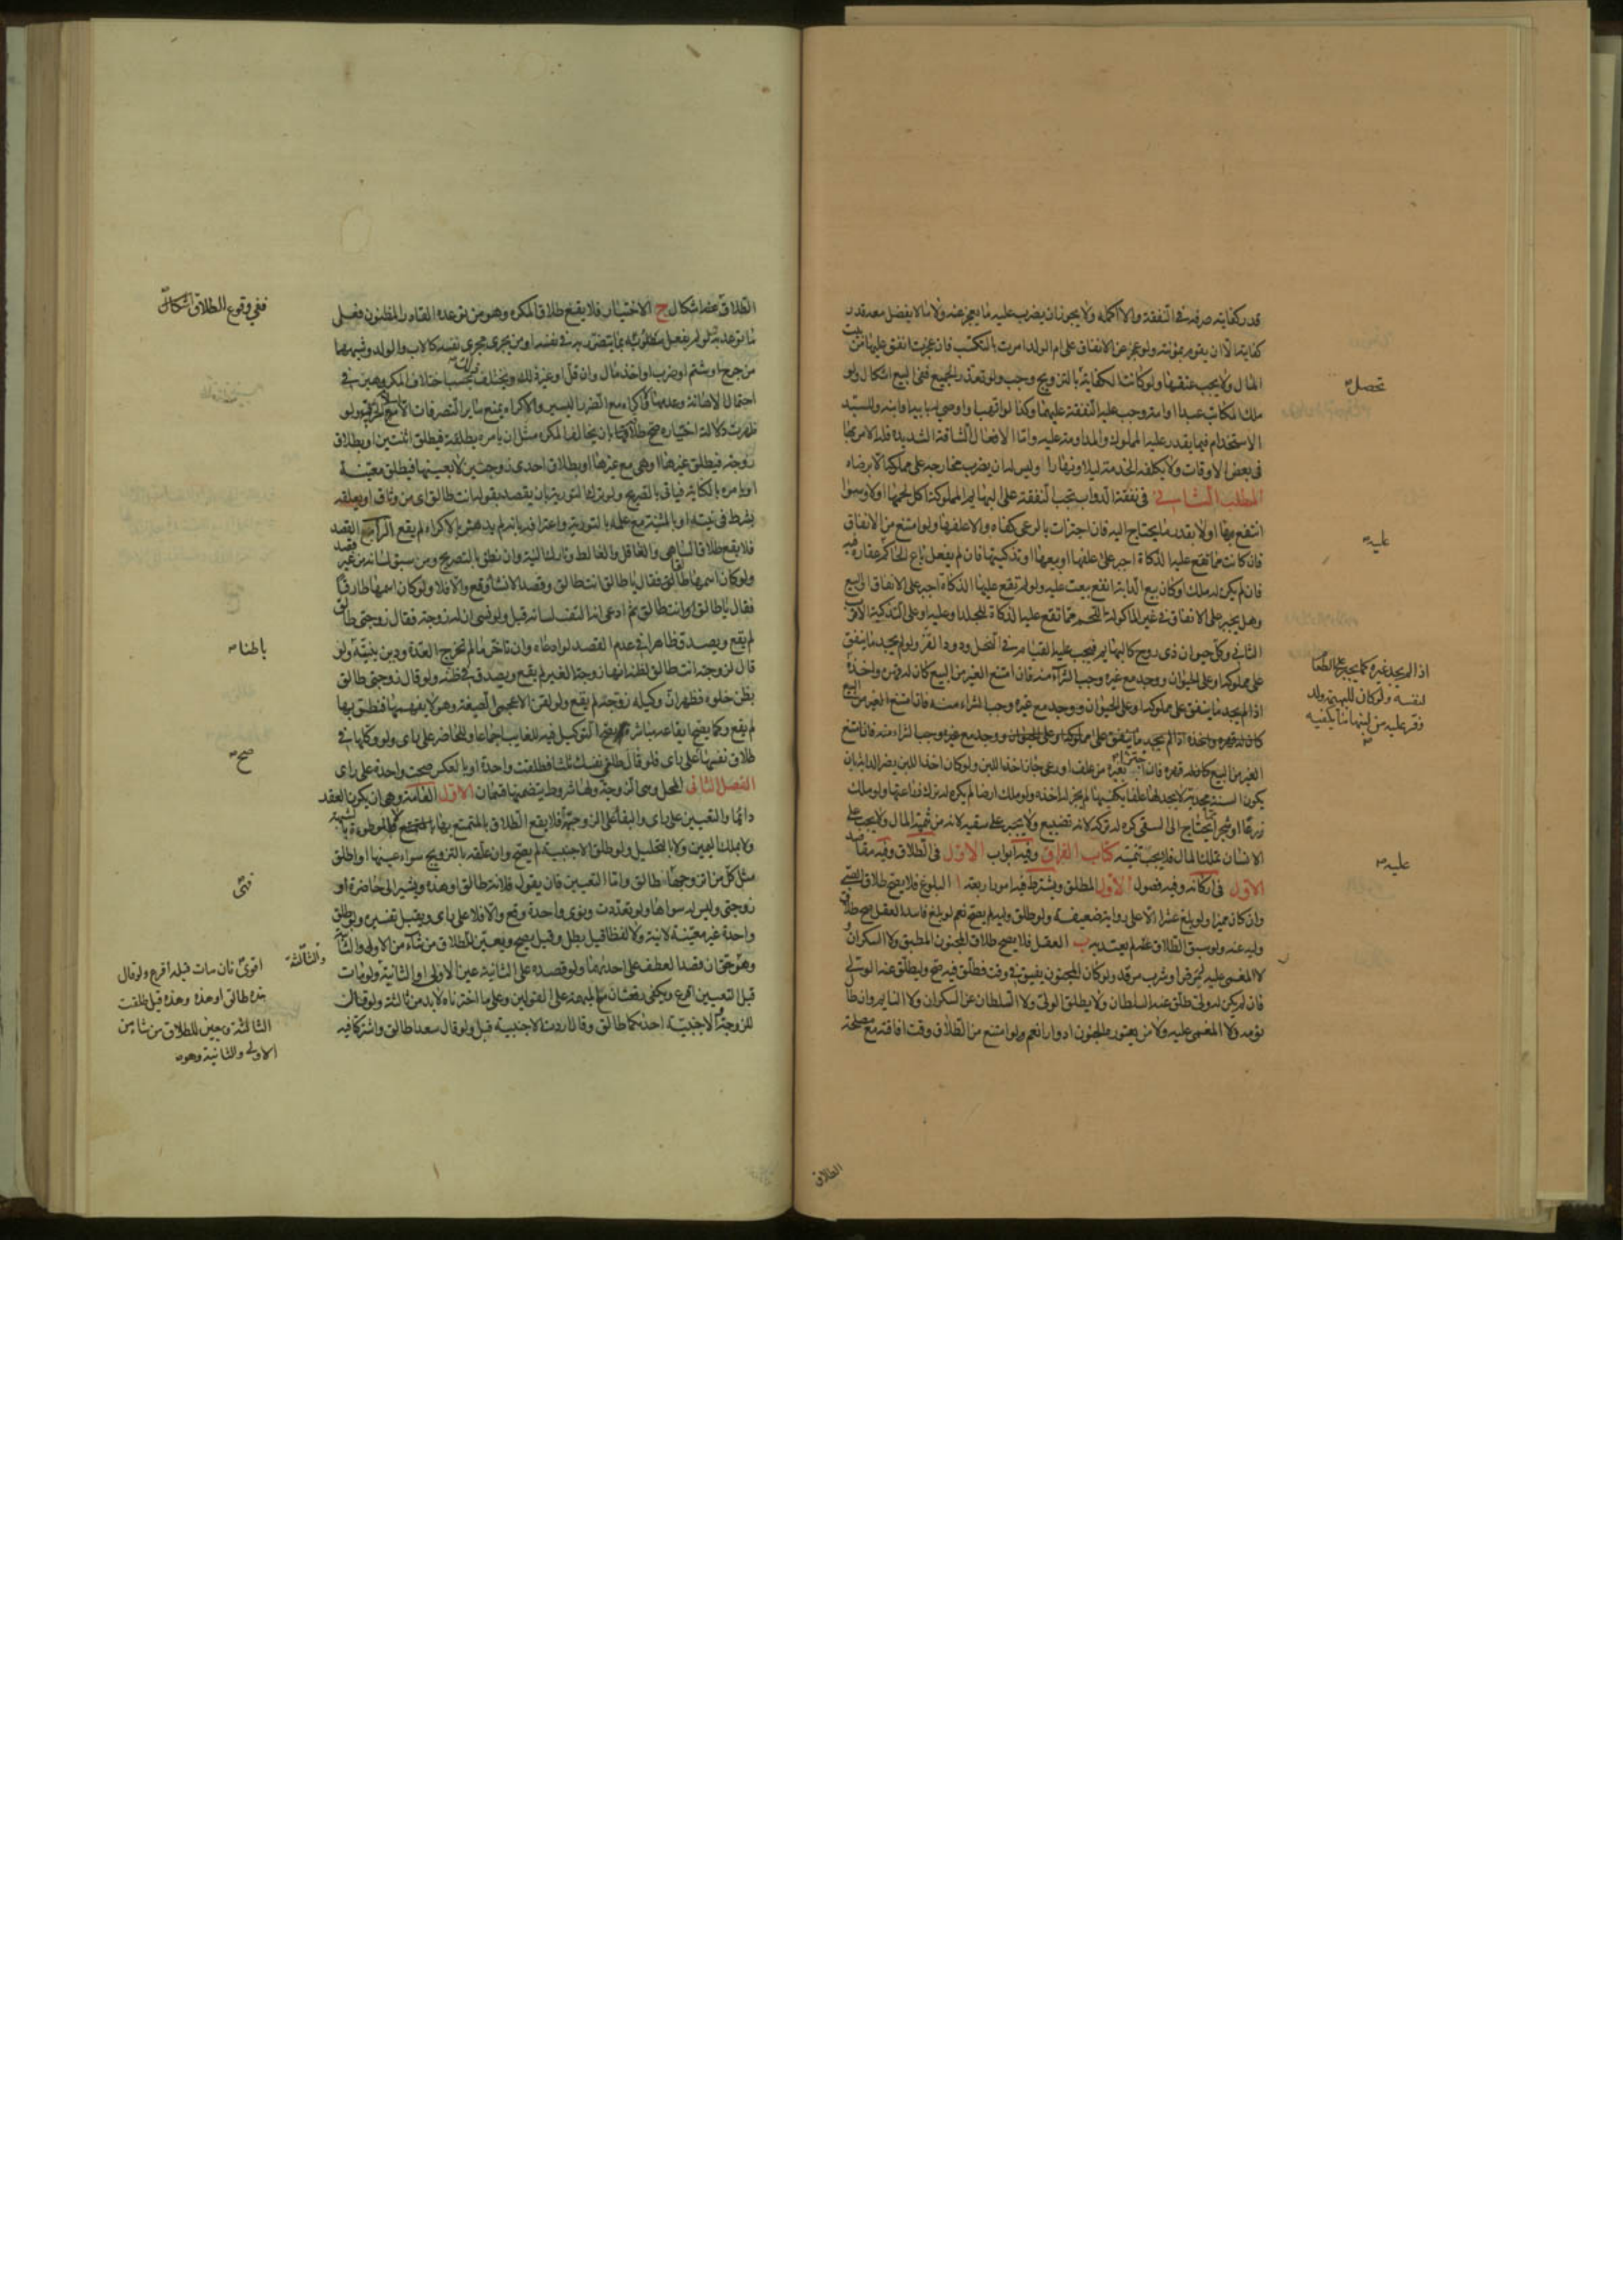 قدر كفايته صرفه في النفقة والا اكمله ولا يجوز ان يضرب عليه ما يعجز عنه ولا ما لا يفضل معه قدر
كفايته الا ان يقوم بمؤنته ولو عجز عن الانفاق على ام الولد امرت بالتكسب فان عجزت انفق عليها من بيت
المال ولا يجب عتقها ولو كانت الكفاية بالتزويج وجب ولو تعذر الجميع ففي البيع اشكال ولو
ملك المكاتب عبدا او امة وجب عليه النفقة عليهما وكذا لو اتهب او اوصي له بابيه او ابنه وللسيد
الاستخدام فيما يقدر عليه المملوك والمداومة عليه واما الافعال الشاقة الشديدة فله الامر بها
في بعض الاوقات ولا يكلفه الخدمة ليلا ونهارا وليس له ان يضرب مخارجة على مملوكه الا برضاه
المطلب الثاني في نفقة الدواب تجب النفقة على البهايم المملوكة اكل لحمها اولا وسوا
انتفع بها اولا بقدر ما يحتاج اليه فان اجتزات بالرعي كفاه والا علفها ولو امتنع من الانفاق
فان كانت مما تقع عليه الذكاة اجبر على علفها او بيعها او تذكيتها فان لم يفعل باع الحاكم عقاره فيه
فان لم يكن له ملك او كان بيع الدابة انفع بيعت عليه ولو لم تقع عليها الذكاة اجبر على الانفاق او البيع
وهل يجبر على الانفاق في غير المأكولة اللحم مما تقع عليه الذكاة للجلد او عليه او على التذكية الاقرب
الثاني وكل حيوان ذي روح كالبهايم فيجب عليه القيام في النحل ودود القز ولو لم يجد ما ينفق
على مملوكه او على الحيوان ووجد مع غيره وجب الشراء منه فان امتنع الغير من البيع كان له قهره واخذه
اذا لم يجد ما ينفق على مملوكه وعلى الحيوان ووجد مع غيره وجب الشراء منه فان امتنع الغير من البيع
كان له قهره واخذه اذا لم يجد ما ينفق على مملوكه وعلى الحيوان ووجد مع غيره وجب الشراء منه فان امتنع
الغير من البيع كان له قهره فان اجتزا بغيره من علف او رعي جاز اخذ اللبن ولو كان اخذ اللبن يضر الدابة بان
يكون السنة مجدبة لا يجد لها علفا يكفيها لم يجز له اخذه ولو ملك ارضا لم يكره له ترك زراعتها ولو ملك
زرعا او شجرا يحتاج الى السقي كره له تركه لانه تضييع ولا يجبر على سقيه لانه من تنمية المال ولا يجب على
الانسان تملك المال فلا يجب تنميته كتاب الفراق وفيه ابواب الاول في الطلاق وفيه مقاصد
الاول في اركانه وفيه فصول الاول المطلق ويشترط فيه امور اربعة ا البلوغ فلا يصح طلاق الصبي
وان كان مميزا ولو بلغ عشرا الا على رواية ضعيفة ولو طلق وليه لم يصح نعم لو بلغ فاسد العقل صح طلاق
وليه عنه ولو سبق الطلاق عقله لم يعتد به ب العقل فلا يصح طلاق المجنون المطبق ولا السكران
لا المغمى عليه لمرض او شرب مرقد ولو كان المجنون يفيق في وقت فطلق فيه صح ويطلق عنه الولي
فان لم يكن له ولي طلق عنه السلطان ولا يطلق الولي ولا السلطان عن السكران ولا النايم وان طال
نومه ولا المغمى عليه ولا من يعتوره الجنون ادوارا نعم ولو امتنع من الطلاق وقت افاقته مع مصلحة
تحصل
عليه
اذا لم يجد غيره كما يجبر على الطعام
لنفسه ولو كان للبهيمة ولد
وفر عليه من لبنها ما يكفيه
عليه
الطلاق
الطلاق عنه اشكال ج الاختيار فلا يقع طلاق المكره وهو من توعده القادر المظنون فعل
ما توعد به لو لم يفعل مطلوبه بما يتضرر به في نفسه او من يجري مجرى نفسه كالاب والولد وشبههما
من جرح او شتم او ضرب او اخذ مال وان قل او غير ذلك ويختلف بحسب اختلاف المكرهين في
احتمال الاهانة وعدمها ولا اكراه مع الضرر اليسير والاكراه يمنع ساير التصرفات الا اسلام الحربي ولو
ظهرت دلالة اختياره صح طلاقه كما بان يخالف المكره مثل ان يامره بطلقة فيطلق اثنتين او بطلاق
زوجة فيطلق غيرها او هي مع غيرها او بطلاق احدى زوجتيه لا بعينها فيطلق معينة
او يامره بالكناية فياتي بالصريح ولو ترك التورية بان يقصد بقوله انت طالق اي من وثاق او يعلقه
بشرط في نيته او بالمشية مع علمه بالتورية واعترافه بانه لم يدهش بالاكراه لم يقع الرابع القصد
فلا يقع طلاق الساهي والغافل والغالط وتارك النية وان نطق بالصريح ومن سبق لسانه من غير قصد
ولو كان اسمها طالقا فقال يا طالق انت طالق وقصد الانشا وقع والا فلا ولو كان اسمها طارقا
فقال يا طالق او انت طالق ثم ادعى انه التف لسانه قبل ولو نسي ان له زوجة فقال زوجتي طالق
لم يقع ويصدق ظاهرا في عدم القصد لو ادعاه وان تاخر ما لم تخرج العدة ودين بنيته ولو
قال لزوجته انت طالق لظنه انها زوجة الغير لم يقع ويصدق في ظنه ولو قال زوجتي طالق
بظن خلوه فظهر ان وكيله زوجه لم يقع ولو لقن الاعجمي الصيغة وهو لا يفهمها فنطق بها
لم يقع وكما يصح ايقاعه مباشرة يصح التوكيل فيه للغايب اجماعا وللحاضر على راي ولو وكلها في
طلاق نفسها على راي فلو قال طلقي نفسك ثلثا فطلقت واحدة او بالعكس صحت واحدة على راي
الفصل الثاني المحل وهي الزوجة ولها شروط يتضمنها قسمان الاول العامة وهي ان يكون العقد
دائما والتعيين على راي والبقا على الزوجية فلا يقع الطلاق بالمتمتع بها ولا الموطوءة بالشبهة
ولا بملك اليمين ولا بالتحليل ولو طلق الاجنبية لم يصح وان علقه بالتزويج سواء عينها او اطلق
مثل كل من اتزوجها طالق واما التعيين فان يقول فلانة طالق او هذه ويشير الى حاضرة او
زوجتي وليس له سواها ولو تعددت ونوى واحدة وقع والا فلا على راي ويقبل تفسيره ولو طلق
واحدة غير معينة لا نية ولا لفظا قيل بطل وقيل يصح ويعين للطلاق من شاء من الاولى والثانية
وهو حق ان قصد العطف على احدهما ولو قصده على الثانية عين الاولى او الثانية ولو مات
قبل التعيين اقرع ويكفي رقعتان مع المبهمة على القولين وعلى ما اخترناه لا بد من ثالثة ولو قال
للزوجة والاجنبية احدكما طالق وقال اردت الاجنبية قبل ولو قال سعدا طالق واشتركا فيه
ففي وقوع الطلاق اشكال
باطنا
صح
فهي
والثالثة
اقوى فان مات قبله اقرع ولو قال
هذه طالق او هذه وهذه قيل طلقت
الثالثة ويعين للطلاق من شاء من
الاولى والثانية وهو